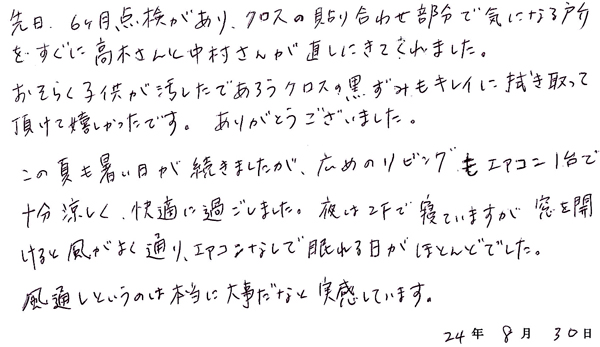 先日、6ヶ月点検があり、クロスの貼り合わせ部分で気になる所
を、すぐに高木さんと中村さんが直しにきてくれました。
おそらく子供が汚したであろうクロスの黒ずみもキレイに拭き取って
頂けて嬉しかったです。 ありがとうございました。
この夏も暑い日が続きましたが、広めのリビングもエアコン1台で
十分涼しく、快適に過ごしました。夜は2Fで寝ていますが窓を開
けると風がよく通り、エアコンなしで眠れる日がほとんどでした。
風通しというのは本当に大事だなと実感しています。
24年 8月 30日